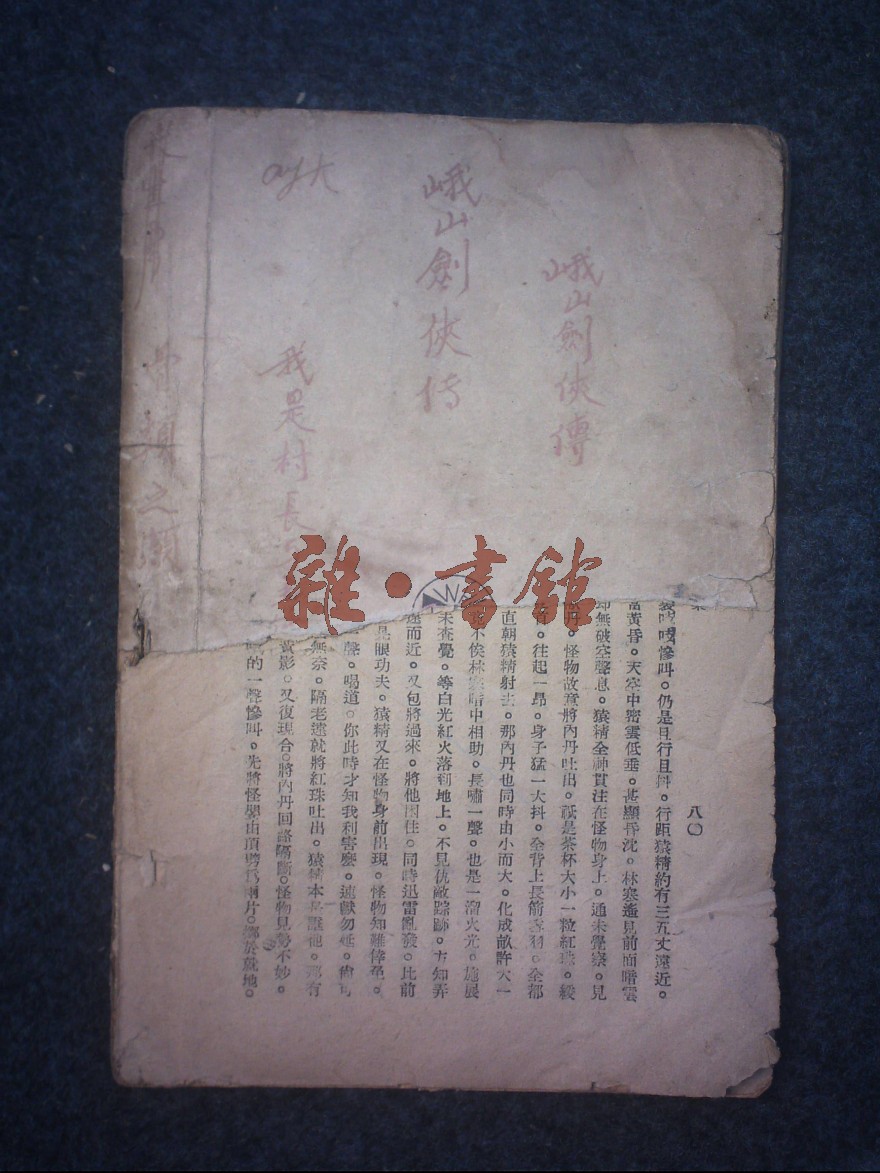 峨山劍俠傳
峨山劍俠传
我是村長
之
雜·書館
八〇
慘叫。仍是且行且抖。行距猿精約有三五丈遠近。
當黃昏。天空中密雲低垂。甚顯昏沈。林寒遙見前面暗雲
即無破空聲息。猿精全神貫注在怪物身上。通未覺察。見
丹。怪物故意將內丹吐出。祇是茶杯大小一粒紅珠。緩
。往起一昂。身子猛一大抖。全背上長箭。全都
直朝猿精射去。那內丹也同時由小而大。化成畝許大一
不俟林寒暗中相助。長嘯一聲。也是一溜火光。施展
未查覺。等白光紅火落到地上。不見仇敵踪跡。方知弄
遠而近。又包將過來。將他困住。同時迅雷亂發。比前
眼功夫。猿精又在怪物身前出現。怪物知難倖免。
聲。喝道。你此時才知我利害麼。速獻勿延。尚可
無奈。隔老遠就將紅珠吐出。猿精本是
黃影。又復現合。將內丹回路隔斷。怪物見勢不妙。
的一聲慘叫。先將怪物由頂劈為兩片。擲於就地。